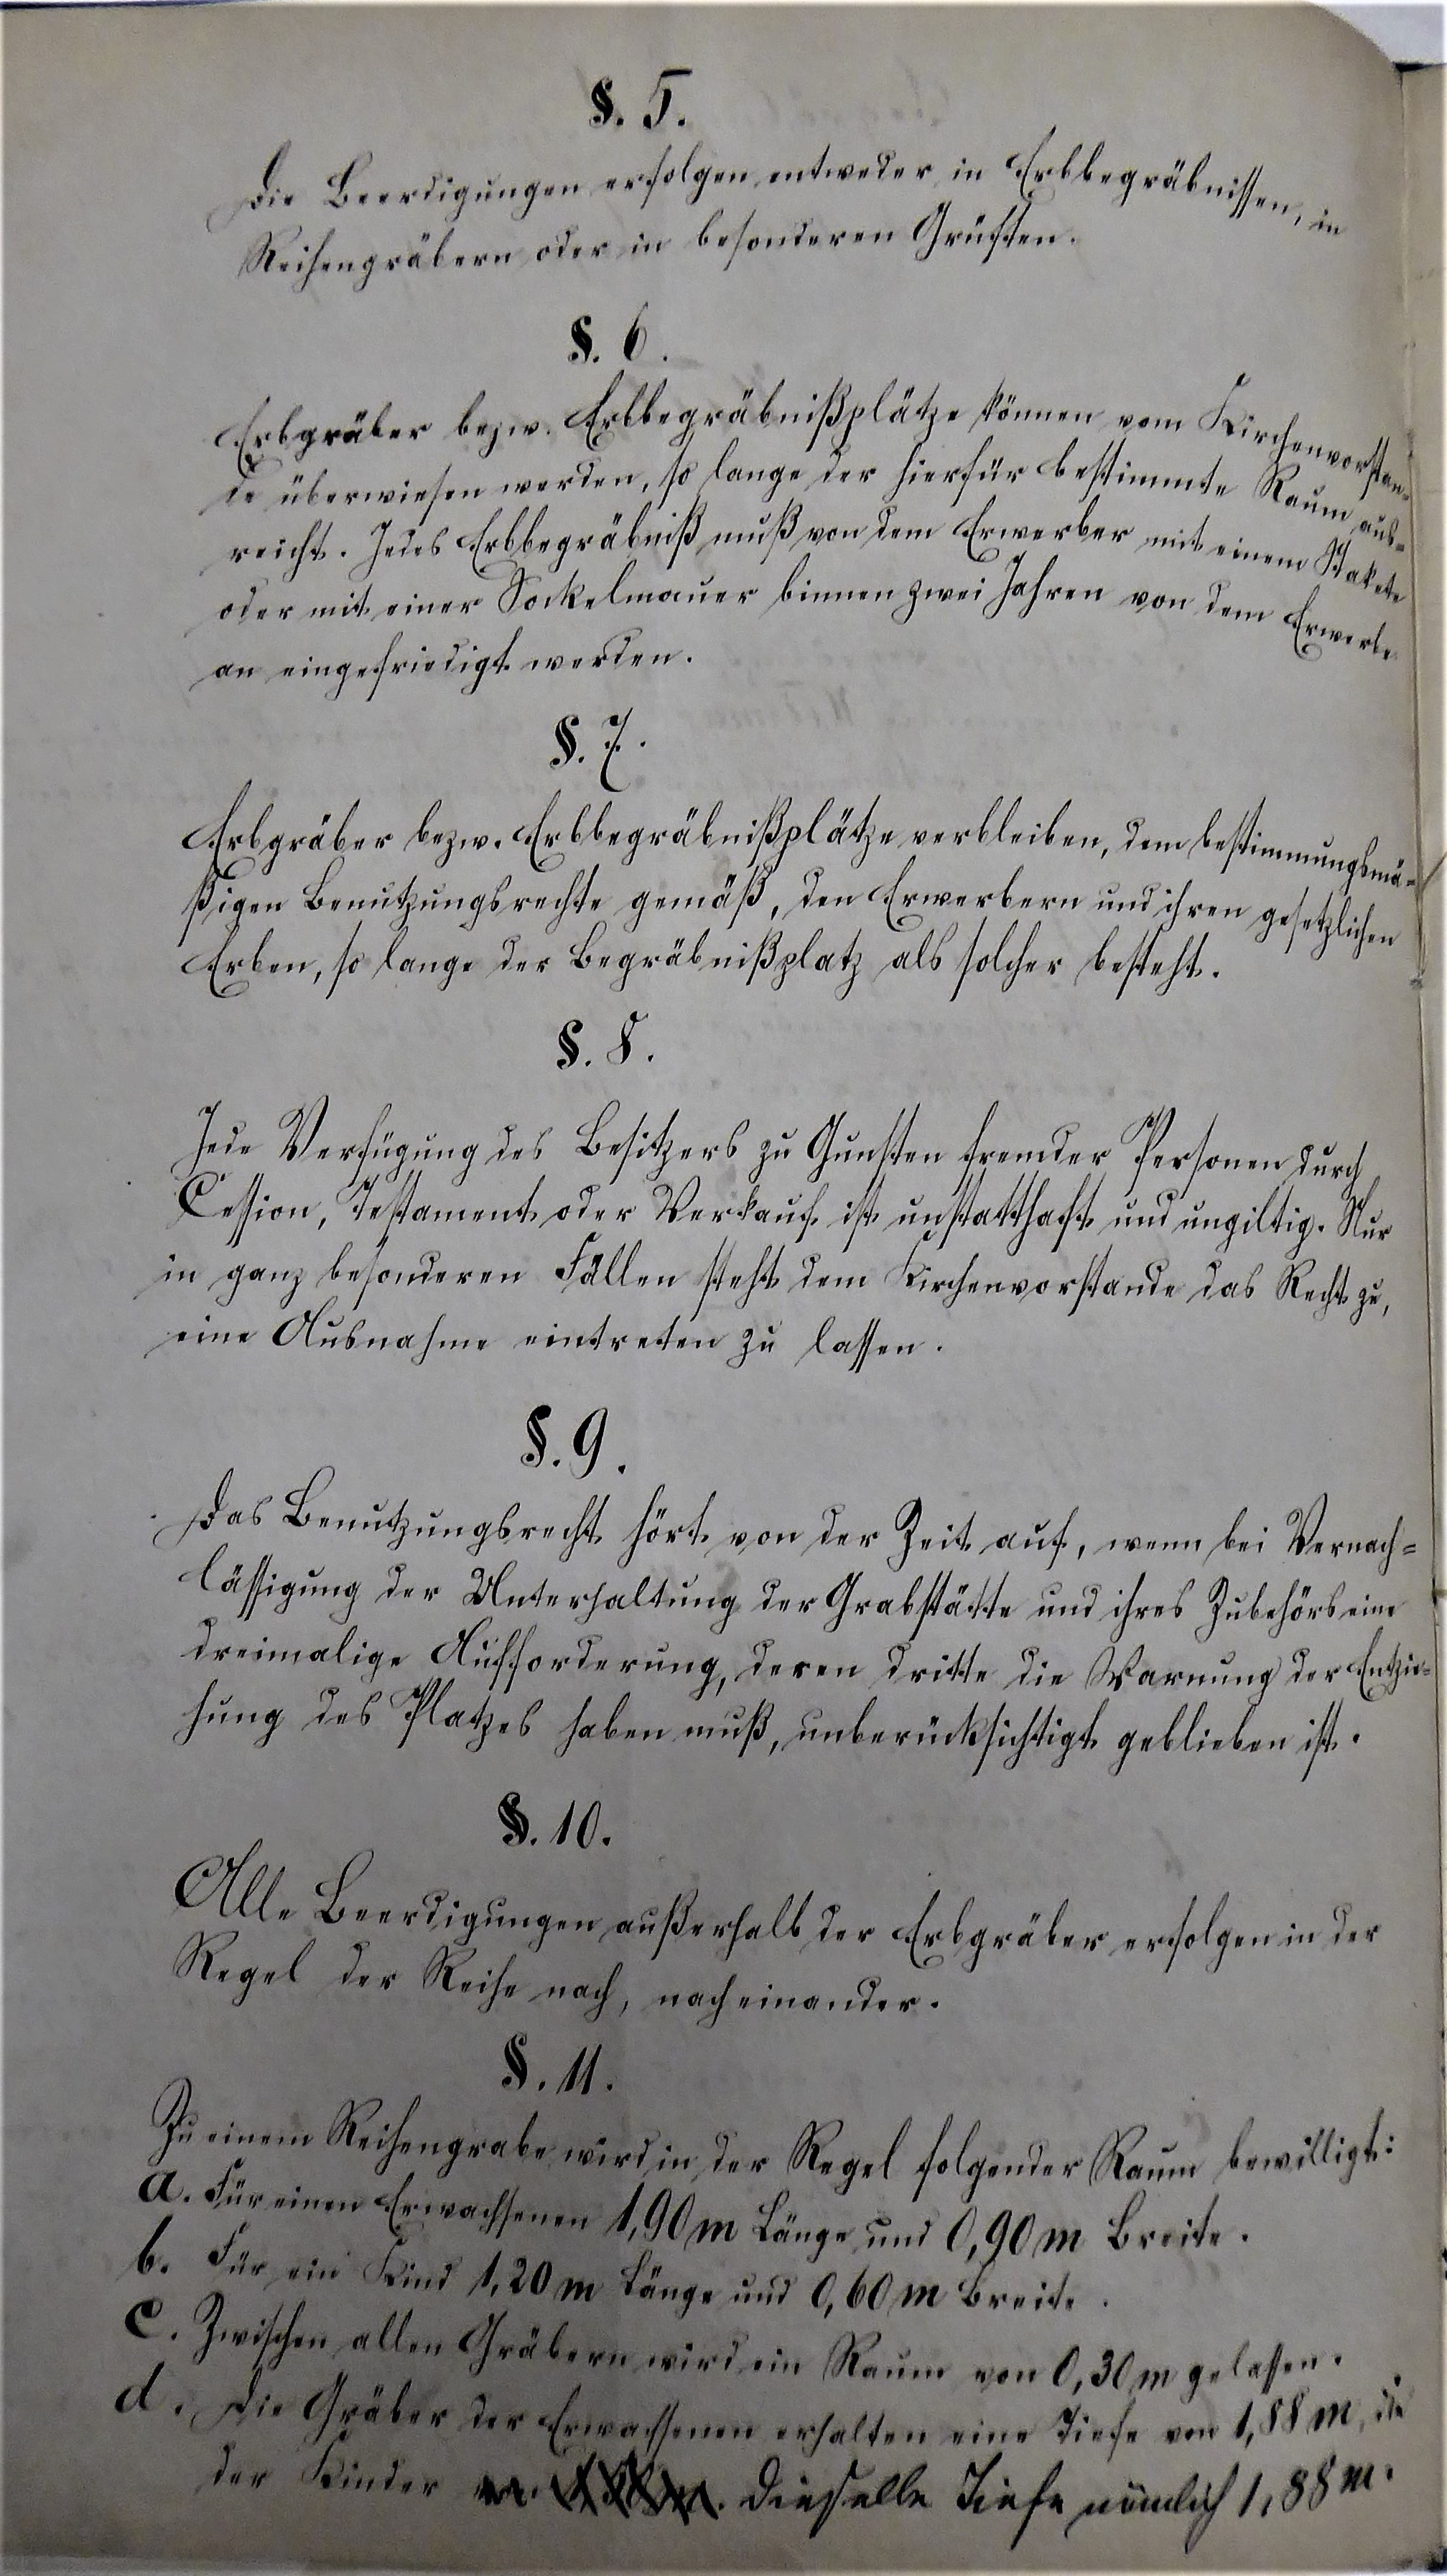 §. 5.
Die Beerdigungen erfolgen entweder in Erbbegräbnissen, in
Reihengräbern oder in besonderen Grüften.
§. 6.
Erbgräber bezw. Erbbegräbnißplätze können vom Kirchenvorstan-
de überwiesen werden, so lange der hierfür bestimmte Raum aus-
reicht. Jedes Erbbegräbniß muß von dem Erwerber mit einem Stakete
oder mit einer Sockelmauer binnen zwei Jahren von dem Erwerbe
an eingefriedigt werden.
§. 7.
Erbgräber bezw. Erbbegräbnißplätze verbleiben, dem bestimmungsmä-
ßigen Benutzungsrechte gemäß, den Erwerbern und ihren gesetzlichen
Erben, so lange der Begräbnißplatz als solcher besteht.
§. 8.
Jede Verfügung des Besitzers zu Gunsten fremder Personen durch
Cession, Testament oder Verkauf ist unstatthaft und ungiltig. Nur
in ganz besonderen Fällen steht dem Kirchenvorstande das Recht zu,
eine Ausnahme eintreten zu lassen.
§. 9.
Das Benutzungsrecht hört von der Zeit auf, wenn bei Vernach-
lässigung der Unterhaltung der Grabstätte und ihres Zubehörs eine
dreimalige Aufforderung, deren dritte die Warnung der Entzie-
hung des Platzes haben muß, unberücksichtigt geblieben ist.
§. 10.
Alle Beerdigungen außerhalb der Erbgräber erfolgen in der
Regel der Reihe nach, nacheinander.
§. 11.
Zu einem Reihengrabe wird in der Regel folgender Raum bewilligt:
a. Für einen Erwachsenen 1,90 m Länge und 0,90 m Breite.
b. Für ein Kind 1,20 m Länge und 0,60 m Breite.
c. Zwischen allen Gräbern wird ein Raum von 0,30 m gelassen.
d. Die Gräber der Erwachsenen erhalten eine Tiefe von 1,88 m, die
der Kinder dieselbe Tiefe nämlich 1,88 m.